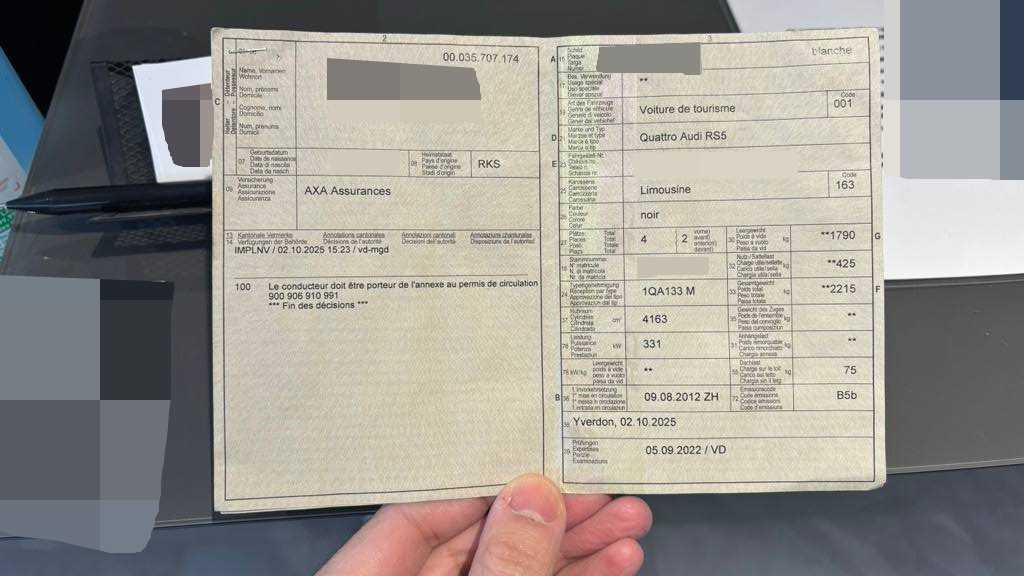 2
00.035.707.174
C
Name, Vornamen
Wohnort
Nom, prénoms
Domicile
Cognome, nomi
Domicilio
Num, prenums
Domicil
07
Geburtsdatum
Date de naissance
Data di nascita
Data da nasch.
08
Heimatstaat
Pays d'origine
Paese d'origine
Stadi d'origin
RKS
09
Versicherung
Assurance
Assicurazione
Assicuranza
AXA Assurances
13 Kantonale Vermerke Annotations cantonales Annotazioni cantonali Annotaziuns chantunalas
14 Verfügungen der Behörde Décisions de l'autorité Decisioni dell'autorità Disposiziun da l'autoritad
IMPLNV / 02.10.2025 15:23 / vd-mgd
100 Le conducteur doit être porteur de l'annexe au permis de circulation
900 906 910 991
*** Fin des décisions ***
3
A 15
Schild
Plaque
Targa
Numer
blanche
Bes. Verwendung
Usage spécial
Uso speciale
Diever spezial
**
Art des Fahrzeugs
Genre de véhicule
Genere di veicolo
Gener dal vehichel
Voiture de tourisme
Code
001
D
Marke und Typ
Marque et type
Marca e tipo
Marca e tip
Quattro Audi RS5
E
Fahrgestell-Nr.
Châssis no
Telaio n.
Schassis nr.
Karosserie
Carrosserie
Carrozzeria
Carossaria
Limousine
Code
163
Farbe
Couleur
Colore
Colur
noir
27
Plätze Total
Places Total
Posti Totale
Plazs Total
4
2
vorne)
avant)
anteriori)
davant)
Leergewicht
Poids à vide
Peso a vuoto
Paisa vid
kg
**1790
G
Stammnummer
N° matricule
N. di matricola
Nr. da matricla
Nutz-/Sattellast
Charge utile/sellette
Carico utile/sella
Chargia utila/sella
kg
**425
24
Typengenehmigung
Réception par type
Approvazione del tipo
Approvaziun dal tip
1QA133 M
33
Gesamtgewicht
Poids total
Peso totale
Paisa totala
kg
**2215
F
37
Hubraum
Cylindrée
Cilindrata
Cilindrada
cm³
4163
Gewicht des Zuges
Poids de l'ensemble
Peso del convoglio
Paisa cumposiziun
kg
**
76
Leistung
Puissance
Potenza
Prestaziun
kW
331
31
Anhängelast
Poids remorquable
Carico rimorchiato
Chargia annexa
kg
**
78 kW/kg
Leergewicht
poids à vide
peso a vuoto
paisa da vid
**
55
Dachlast
Charge sur le toit
Carico sul tetto
Chargia sin il tetg
kg
75
B 36
1. Inverkehrsetzung
1re mise en circulation
1a messa in circolazione
1. entrada en circulaziun
09.08.2012 ZH
72
Emissionscode
Code émissions
Codice emissioni
Code d'emissiuns
B5b
38 Yverdon, 02.10.2025
39
Prüfungen
Expertises
Perizie
Examinaziuns
05.09.2022 / VD